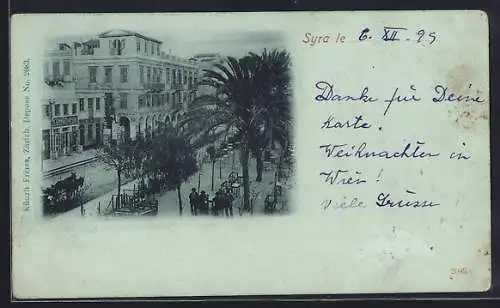 Syra le 6. XII. 99
Danke für Deine
Karte.
Weihnachten in
Wien!
viele Grüsse
Künzli Frères, Zürich, Dépose No. 2063.